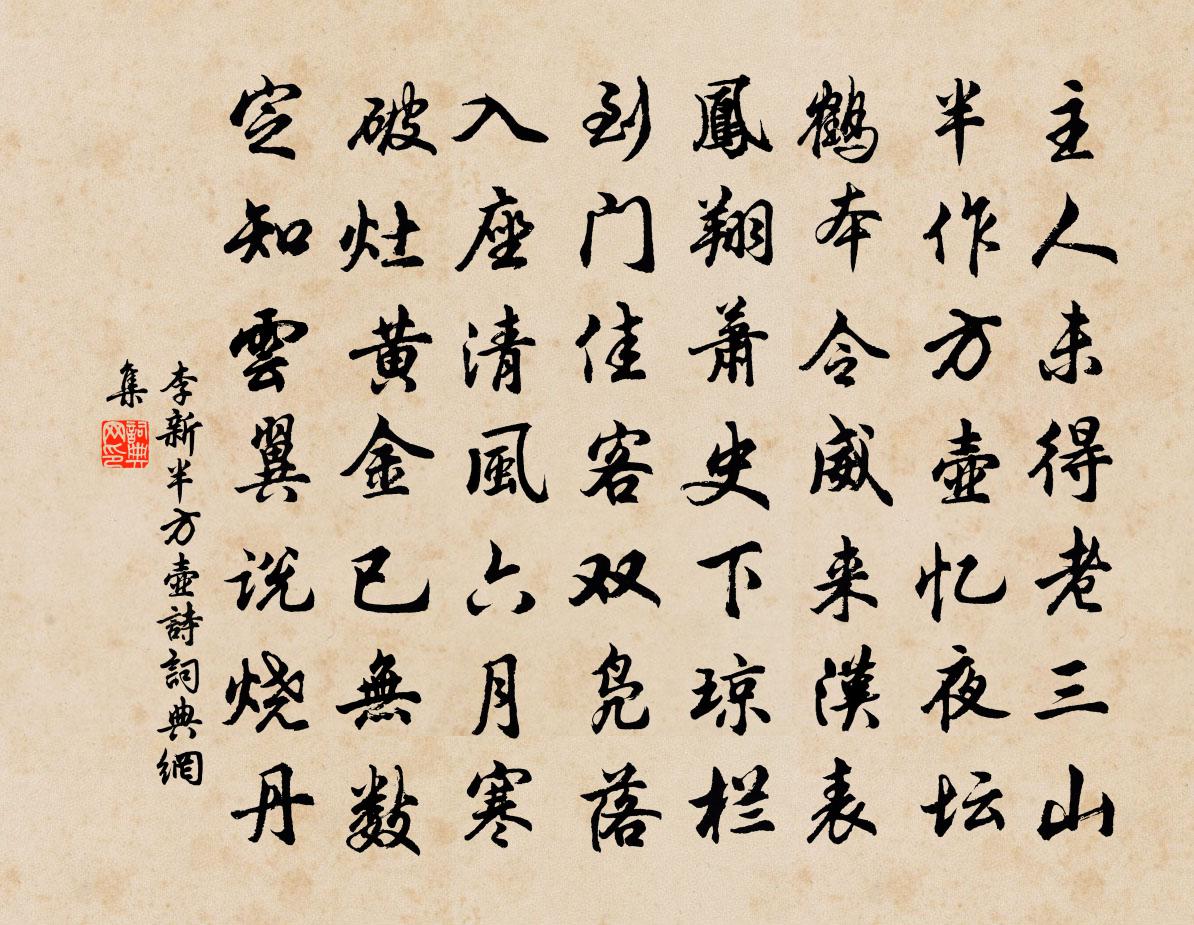 主人未得老三山
半作方壺忆夜坛
鹤本令威来漢表
鳳翔萧史下琼栏
到门佳客双凫落
入座清風六月寒
破灶黄金已無数
定知雲翼说烧丹
李新半方壺詩詞典網
集
詞典网印